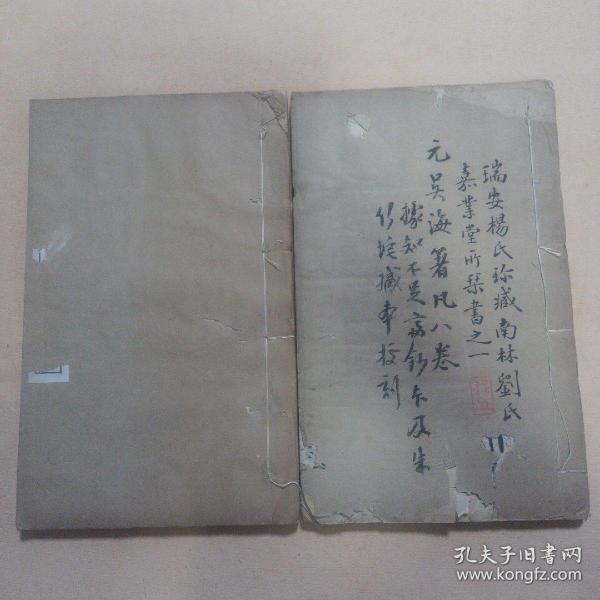 瑞安楊氏弥藏南林劉氏
嘉業堂所栞書之一
元吴海著凡八卷
據知不足齋鈔本及朱
竹垞藏本挍刻
孔夫子旧书网
www.kongfz.com